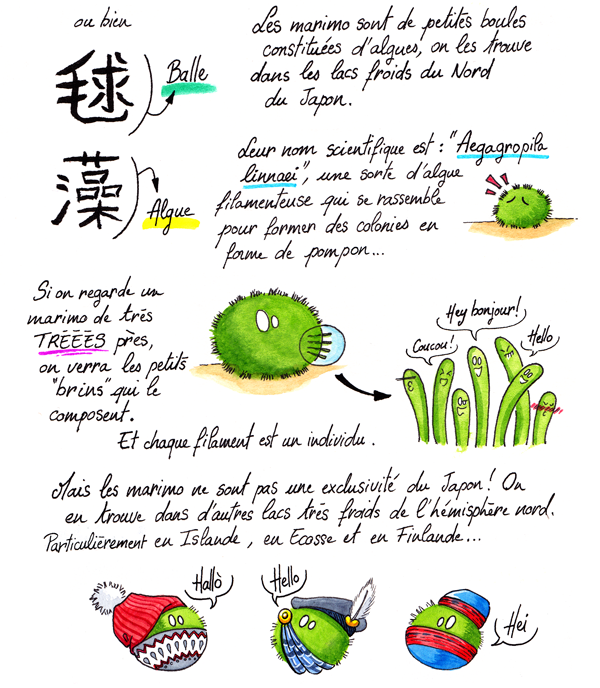 ou bien
毬
Balle
藻
Algue
Les marimo sont de petites boules
constituées d'algues, on les trouve
dans les lacs froids du Nord
du Japon.
Leur nom scientifique est : "Aegagropila
linnaei", une sorte d'algue
filamenteuse qui se rassemble
pour former des colonies en
forme de pompon...
Si on regarde un
marimo de très
TRÈÈÈS près,
on verra les petits
"brins" qui le
composent.
Coucou !
Hey bonjour !
Hello
Et chaque filament est un individu.
Mais les marimo ne sont pas une exclusivité du Japon ! On
en trouve dans d'autres lacs très froids de l'hémisphère nord.
Particulièrement en Islande, en Ecosse et en Finlande...
Hallò
Hello
Hei